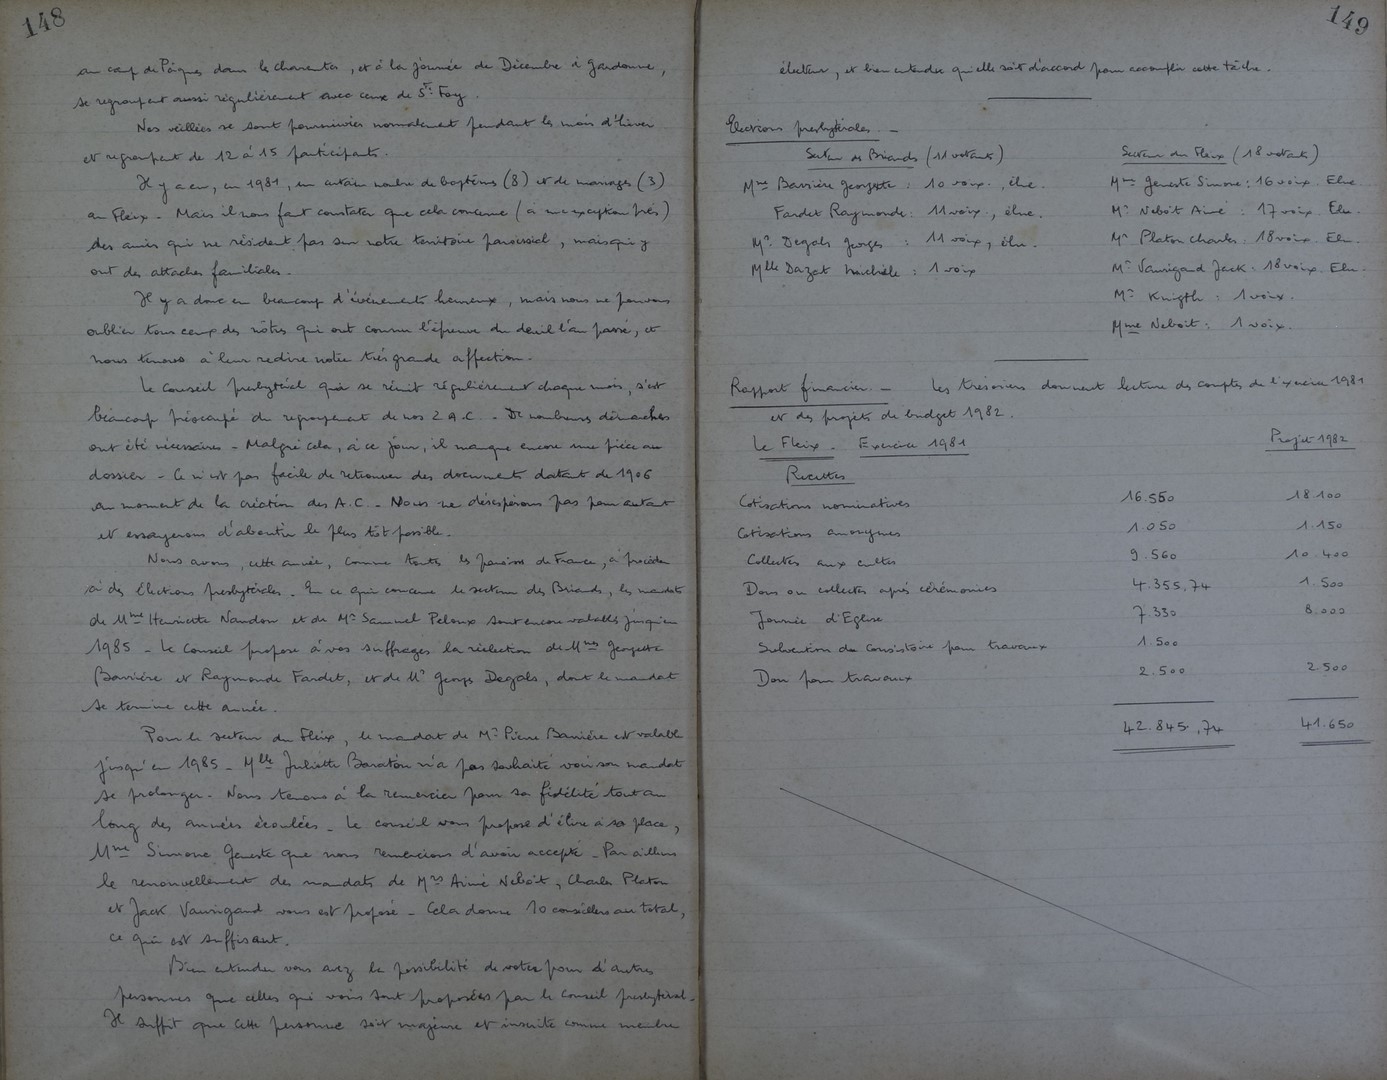 148
au camp de Pâques dans les Charentes, et à la journée de Décembre à Gardonne,
se regroupent aussi régulièrement avec ceux de Ste Foy.
Nos veillées se sont poursuivies normalement pendant les mois d'hiver
et regroupent de 12 à 15 participants.
Il y a eu, en 1981, un certain nombre de baptêmes (8) et de mariages (3)
au Fleix - Mais il nous faut constater que cela concerne (à une exception près)
des amis qui ne résident pas sur notre territoire paroissial, mais qui y
ont des attaches familiales.
Il y a donc eu beaucoup d'événements heureux, mais nous ne pouvons
oublier tous ceux des nôtres qui ont connu l'épreuve du deuil l'an passé, et
nous tenons à leur redire notre très grande affection.
Le Conseil presbytéral qui se réunit régulièrement chaque mois, s'est
beaucoup préoccupé du regroupement de nos 2 A.C. - De nombreuses démarches
ont été nécessaires - Malgré cela, à ce jour, il manque encore une pièce au
dossier - Ce n'est pas facile de retrouver des documents datant de 1906
au moment de la création des A.C. - Nous ne désespérons pas pour autant
et essayerons d'aboutir le plus tôt possible.
Nous avons, cette année, comme toutes les paroisses de France, à procéder
à des élections presbytérales. En ce qui concerne le secteur des Briands, les mandats
de Mme Henriette Naudon et de Mr Samuel Peloux sont encore valables jusqu'en
1985 - Le Conseil propose à vos suffrages la réélection de Mmes Georgette
Barrière et Raymonde Fardet, et de Mr Georges Degals, dont le mandat
se termine cette année.
Pour le secteur du Fleix, le mandat de Mr Pierre Barrière est valable
jusqu'en 1985 - Mlle Juliette Baraton n'a pas souhaité voir son mandat
se prolonger. Nous tenons à la remercier pour sa fidélité tout au
long des années écoulées - Le conseil vous propose d'élire à sa place,
Mme Simone Geneste que nous remercions d'avoir accepté - Par ailleurs
le renouvellement des mandats de Mrs Aimé Neboit, Charles Platon
et Jack Vaurigand vous est proposé - Cela donne 10 conseillers au total,
ce qui est suffisant.
Bien entendu vous avez la possibilité de voter pour d'autres
personnes que celles qui vous sont proposées par le Conseil presbytéral.
Il suffit que cette personne soit majeure et inscrite comme membre
149
électeur, et bien entendu qu'elle soit d'accord pour accomplir cette tâche.
Elections presbytérales. -
Secteur des Briands (11 votants)
Mme Barrière Georgette : 10 voix, élue.
Fardet Raymonde : 11 voix, élue.
Mr Degals Georges : 11 voix, élu.
Mlle Dazat Michèle : 1 voix
Secteur du Fleix (18 votants)
Mme Geneste Simone : 16 voix. Elue
Mr Neboit Aimé : 17 voix. Elu.
Mr Platon Charles : 18 voix. Elu.
Mr Vaurigand Jack : 18 voix. Elu.
Mr Knigth : 1 voix.
Mme Neboit : 1 voix.
Rapport financier. - Les trésoriers donnent lecture des comptes de l'exercice 1981
et des projets de budget 1982.
Le Fleix. Exercice 1981 Projet 1982
Recettes
Cotisations nominatives 16.550 18.100
Cotisations anonymes 1.050 1.150
Collectes aux cultes 9.560 10.400
Dons ou collectes après cérémonies 4.355,74 1.500
Journée d'Eglise 7.330 8.000
Subvention du Consistoire pour travaux 1.500
Don pour travaux 2.500 2.500
42.845,74 41.650